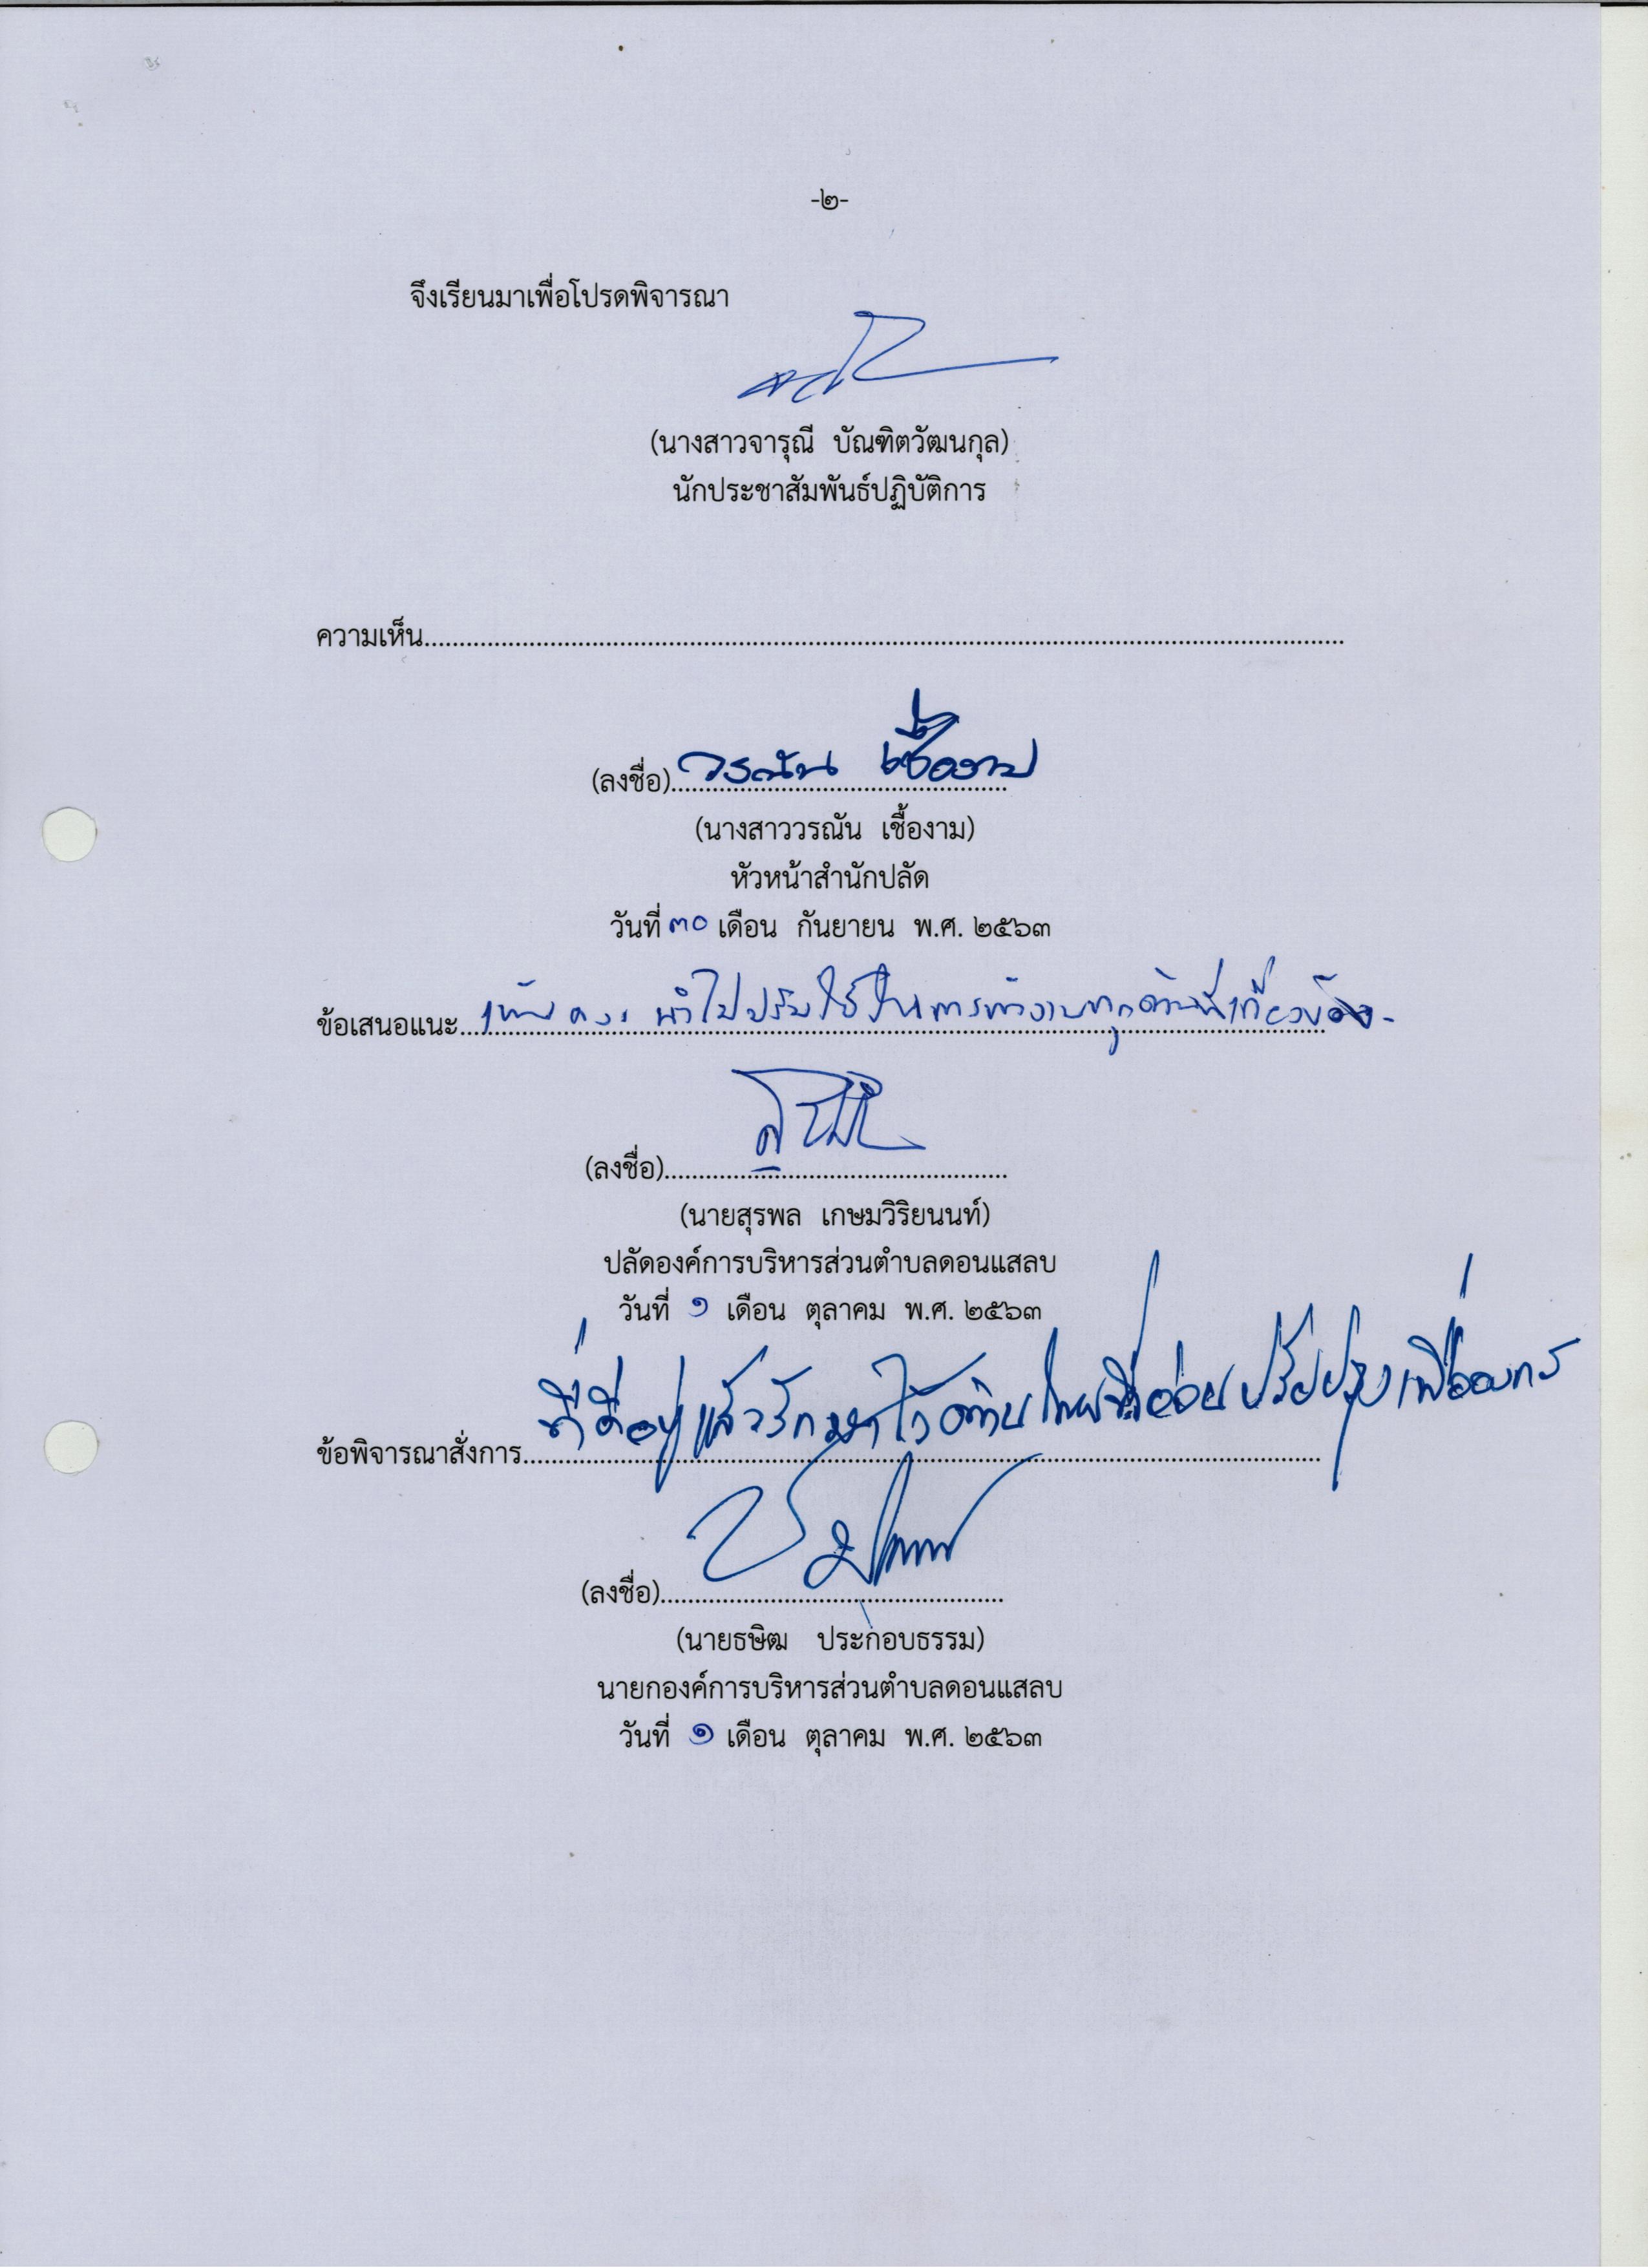 -๒-
จึงเรียนมาเพื่อโปรดพิจารณา
(นางสาวจารุณี บัณฑิตวัฒนกุล)
นักประชาสัมพันธ์ปฏิบัติการ
ความเห็น
(ลงชื่อ) วรณัน เชื้องาม
(นางสาววรณัน เชื้องาม)
หัวหน้าสำนักปลัด
วันที่ ๓๐ เดือน กันยายน พ.ศ. ๒๕๖๓
ข้อเสนอแนะ เห็นควร นำไปปรับใช้ในการทำงานทุกด้านที่เกี่ยวข้อง
(ลงชื่อ)
(นายสุรพล เกษมวิริยนนท์)
ปลัดองค์การบริหารส่วนตำบลดอนแสลบ
วันที่ ๑ เดือน ตุลาคม พ.ศ. ๒๕๖๓
ข้อพิจารณาสั่งการ ที่ดีอยู่แล้วรักษาไว้ ด้านไหนที่อ่อนปรับปรุงเพื่อองค์กร
(ลงชื่อ)
(นายธษิฒ ประกอบธรรม)
นายกองค์การบริหารส่วนตำบลดอนแสลบ
วันที่ ๑ เดือน ตุลาคม พ.ศ. ๒๕๖๓